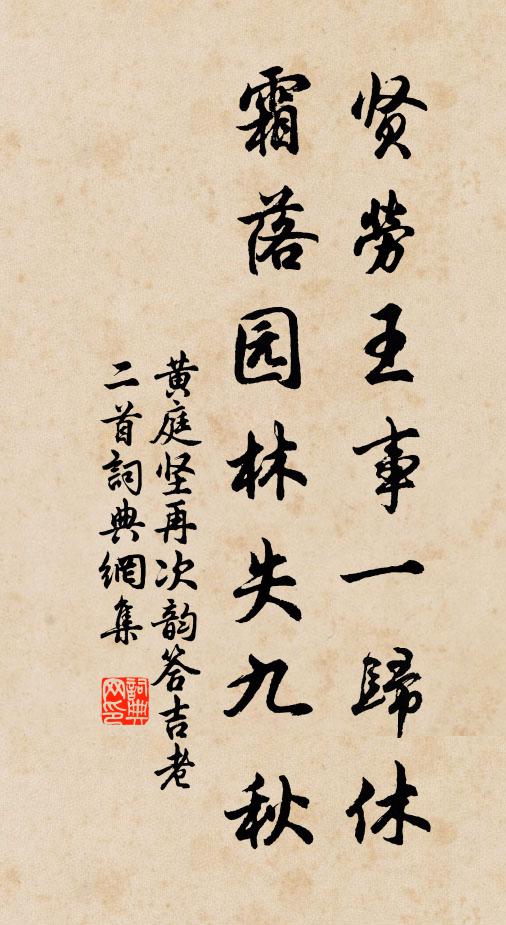 贤劳王事一歸休
霜落园林失九秋
黄庭坚再次韵答吉老
二首詞典網集
詞典
网印